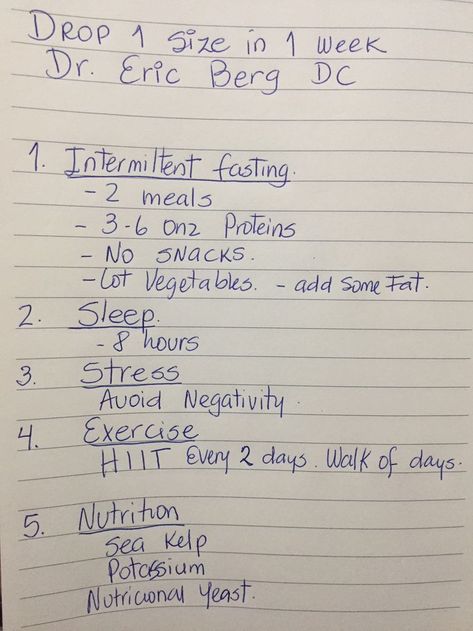 DROP 1 Size in 1 week
Dr. Eric Berg DC
1. Intermiltent fasting.
- 2 meals
- 3-6 onz Proteins
- No SNACKS.
- Lot Vegetables. - add some Fat.
2. Sleep.
- 8 hours
3. Stress
Avoid Negativity.
4. Exercise
HIIT Every 2 days. Walk of days.
5. Nutrition
Sea Kelp
Potassium
Nutricional Yeast.